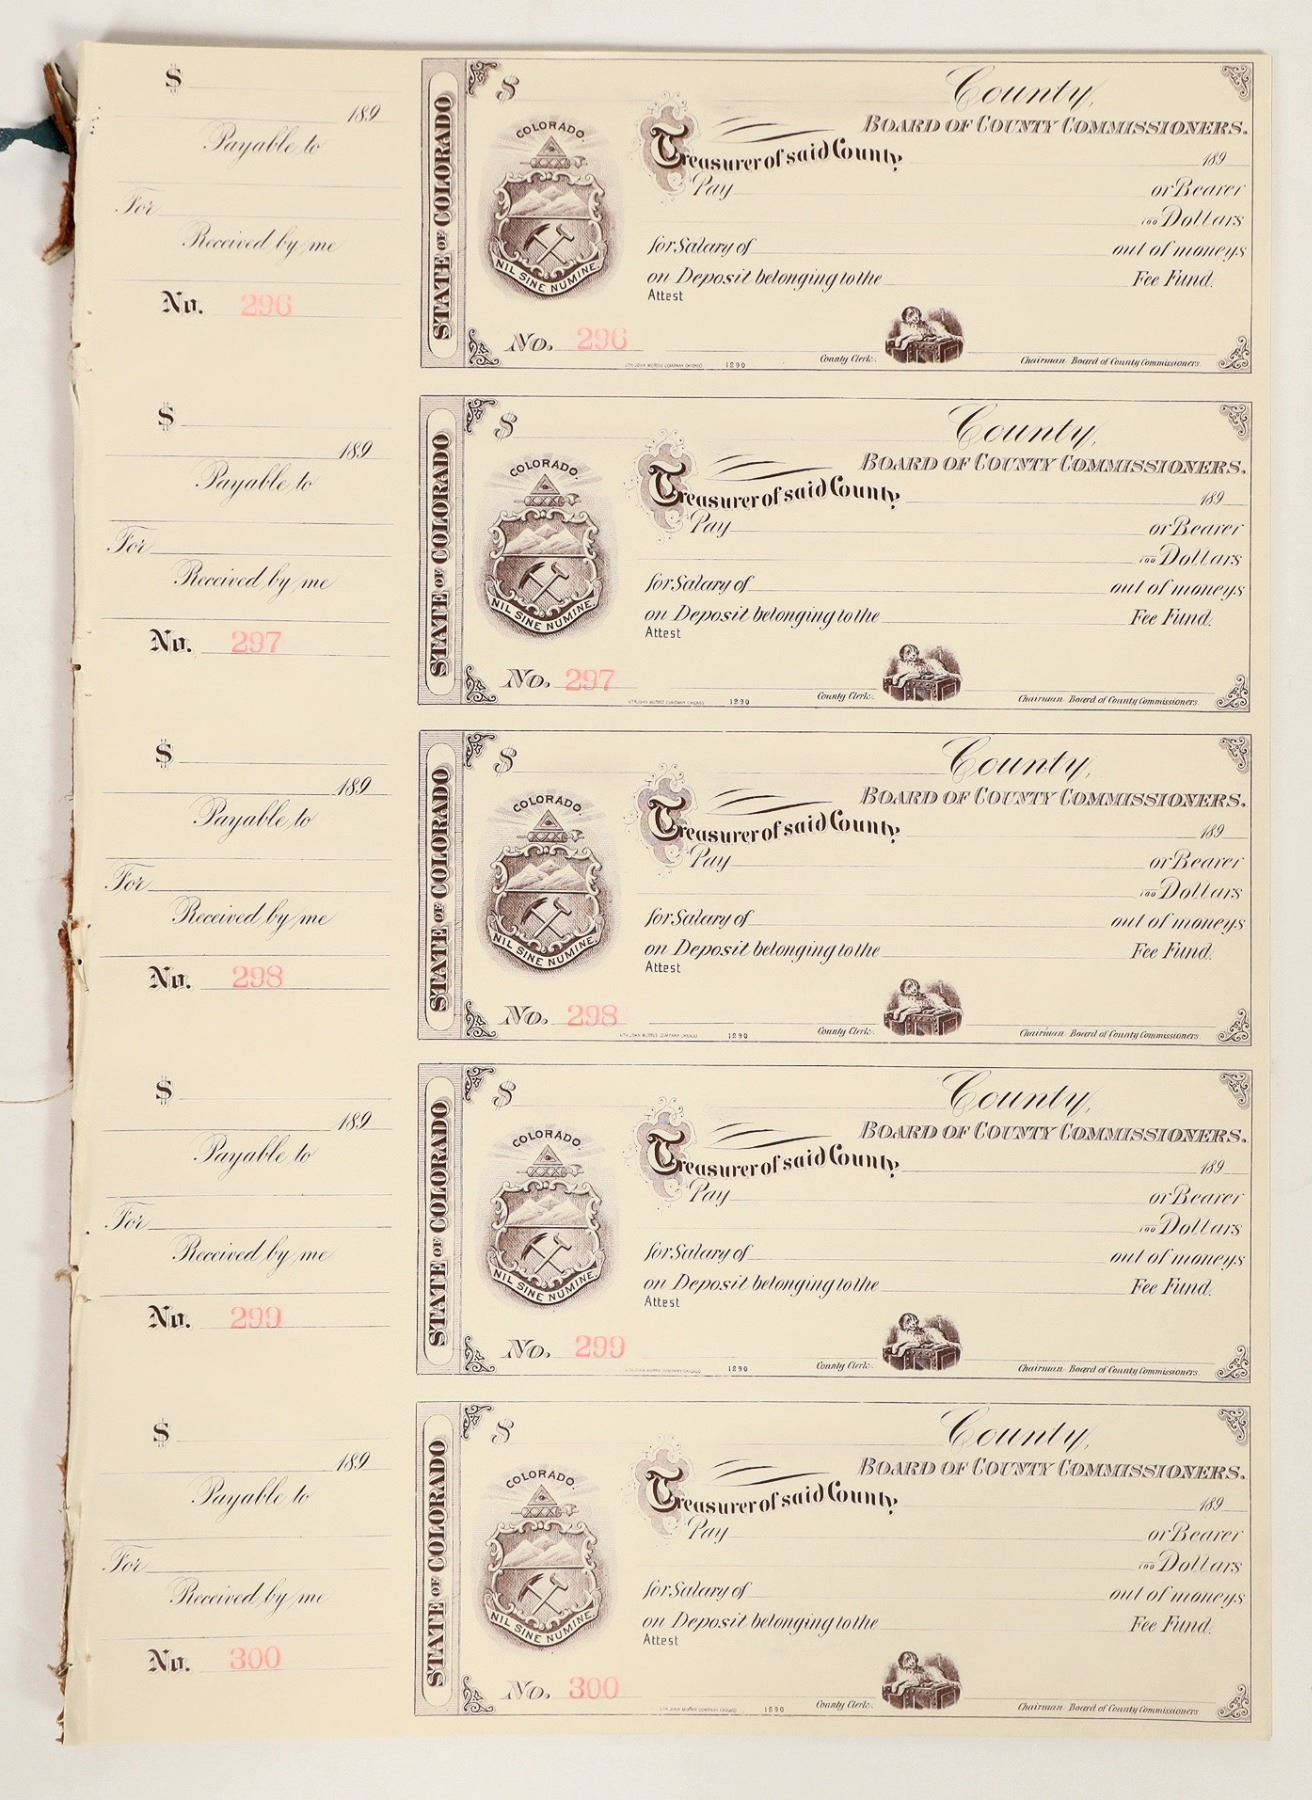 $
189
Payable to
For
Received by me
No. 296
STATE OF COLORADO
$
COLORADO.
NIL SINE NUMINE.
No. 296
County,
BOARD OF COUNTY COMMISSIONERS.
Treasurer of said County
189
Pay or Bearer
100 Dollars
for Salary of out of moneys
on Deposit belonging to the Fee Fund.
Attest
County Clerk. Chairman Board of County Commissioners.
1890
$
189
Payable to
For
Received by me
No. 297
STATE OF COLORADO
$
COLORADO.
NIL SINE NUMINE.
No. 297
County,
BOARD OF COUNTY COMMISSIONERS.
Treasurer of said County
189
Pay or Bearer
100 Dollars
for Salary of out of moneys
on Deposit belonging to the Fee Fund.
Attest
County Clerk. Chairman Board of County Commissioners.
1890
$
189
Payable to
For
Received by me
No. 298
STATE OF COLORADO
$
COLORADO.
NIL SINE NUMINE.
No. 298
County,
BOARD OF COUNTY COMMISSIONERS.
Treasurer of said County
189
Pay or Bearer
100 Dollars
for Salary of out of moneys
on Deposit belonging to the Fee Fund.
Attest
County Clerk. Chairman Board of County Commissioners.
1890
$
189
Payable to
For
Received by me
No. 299
STATE OF COLORADO
$
COLORADO.
NIL SINE NUMINE.
No. 299
County,
BOARD OF COUNTY COMMISSIONERS.
Treasurer of said County
189
Pay or Bearer
100 Dollars
for Salary of out of moneys
on Deposit belonging to the Fee Fund.
Attest
County Clerk. Chairman Board of County Commissioners.
1890
$
189
Payable to
For
Received by me
No. 300
STATE OF COLORADO
$
COLORADO.
NIL SINE NUMINE.
No. 300
County,
BOARD OF COUNTY COMMISSIONERS.
Treasurer of said County
189
Pay or Bearer
100 Dollars
for Salary of out of moneys
on Deposit belonging to the Fee Fund.
Attest
County Clerk. Chairman Board of County Commissioners.
1890